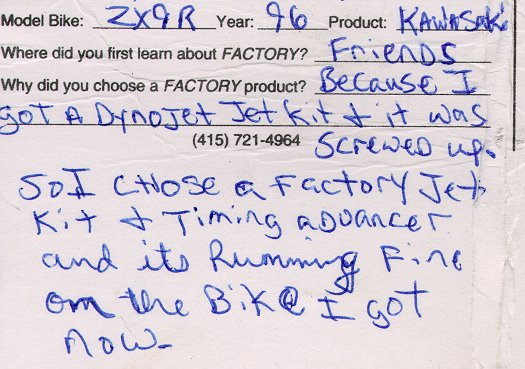 Model Bike: ZX9R Year: 96 Product: KAWASAKi
Where did you first learn about FACTORY? FrienDS
Why did you choose a FACTORY product? Because I
got A DynoJet Jet Kit & it was
(415) 721-4964 Screwed up.
So I CHose a Factory Jet
Kit & Timing aDvancer
and its Running Fine
on the Bike I got
now-